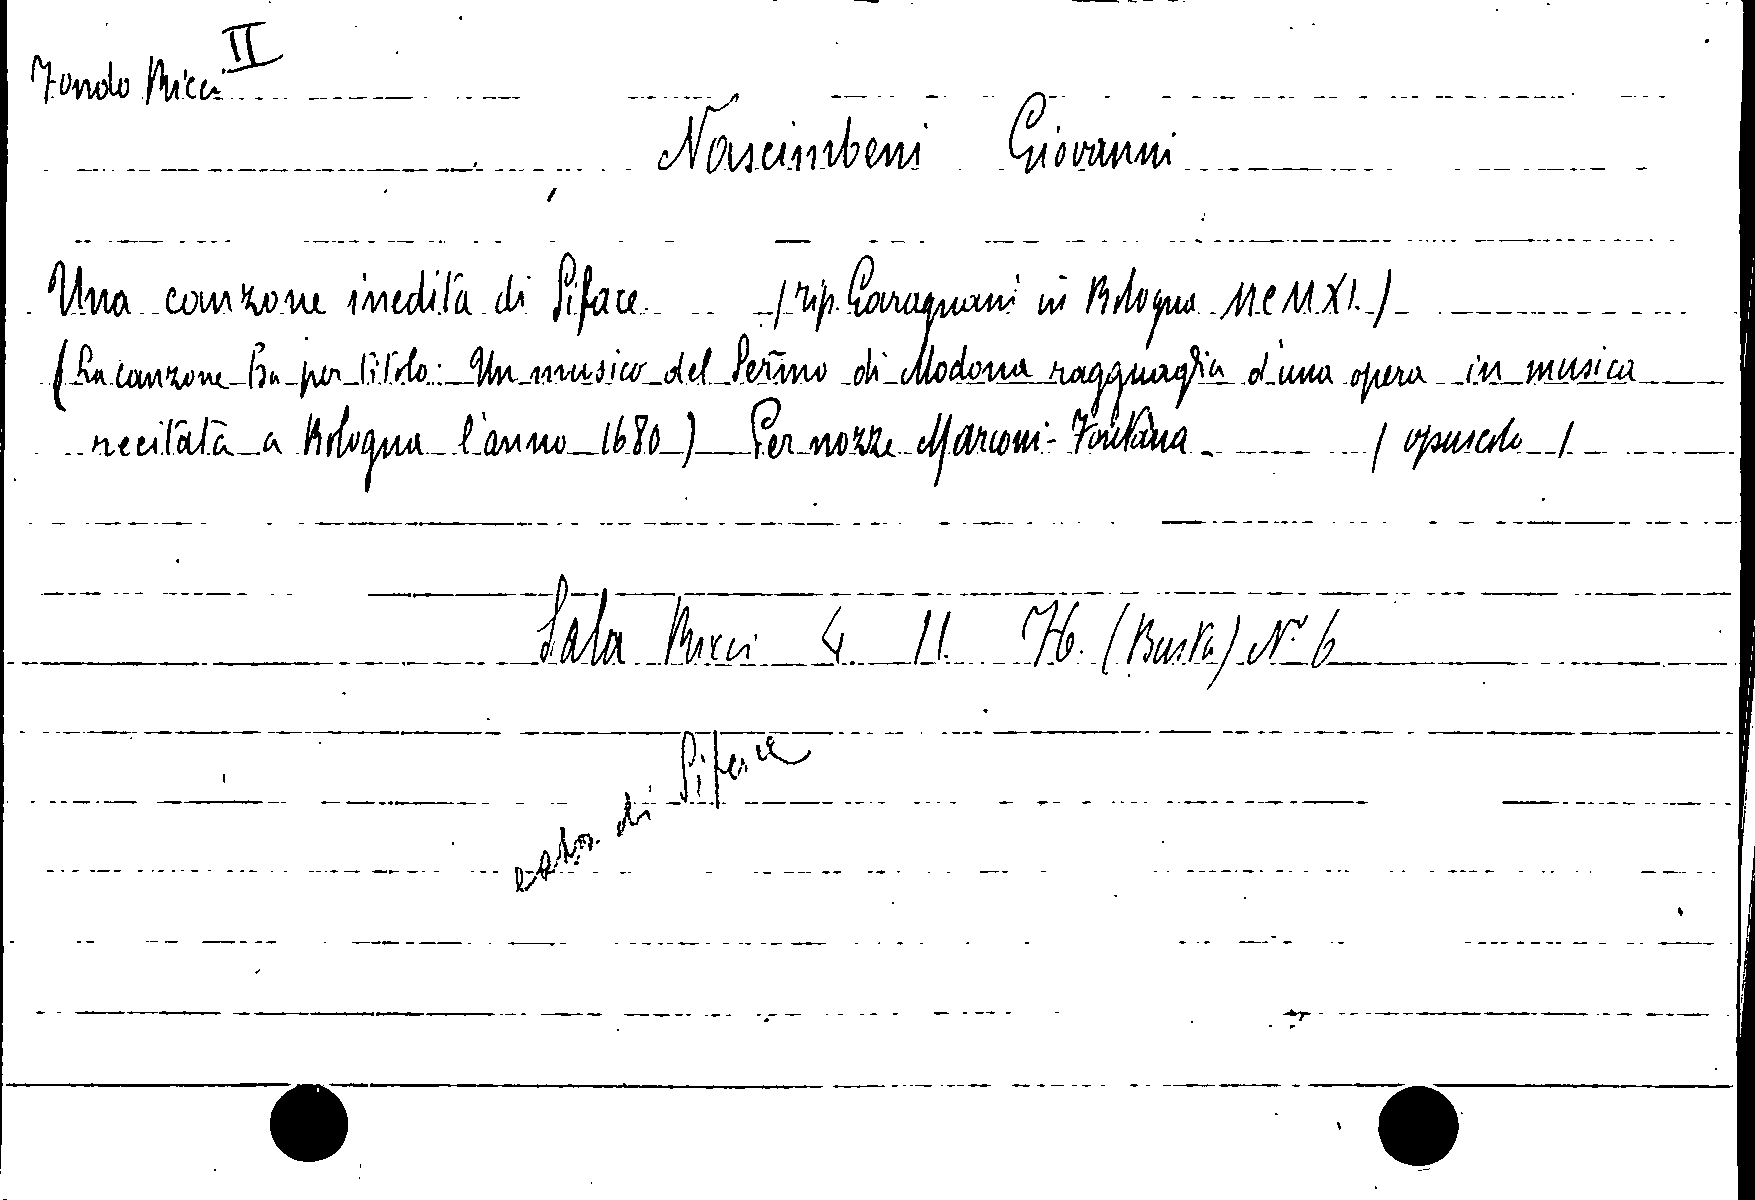 Fondo Ricci II
Nascimbeni Giovanni
Una canzone inedita di Siface (tip. Garagnani in Bologna MCMXI.)
(La canzone ha per titolo: Un musico del Ser̃mo di Modona ragguaglia d'una opera in musica
recitata a Bologna l'anno 1680) Per nozze Marconi-Fontana. (opuscolo)
Sala Ricci 4. 11. H. (Busta) N.º 6
di Siface